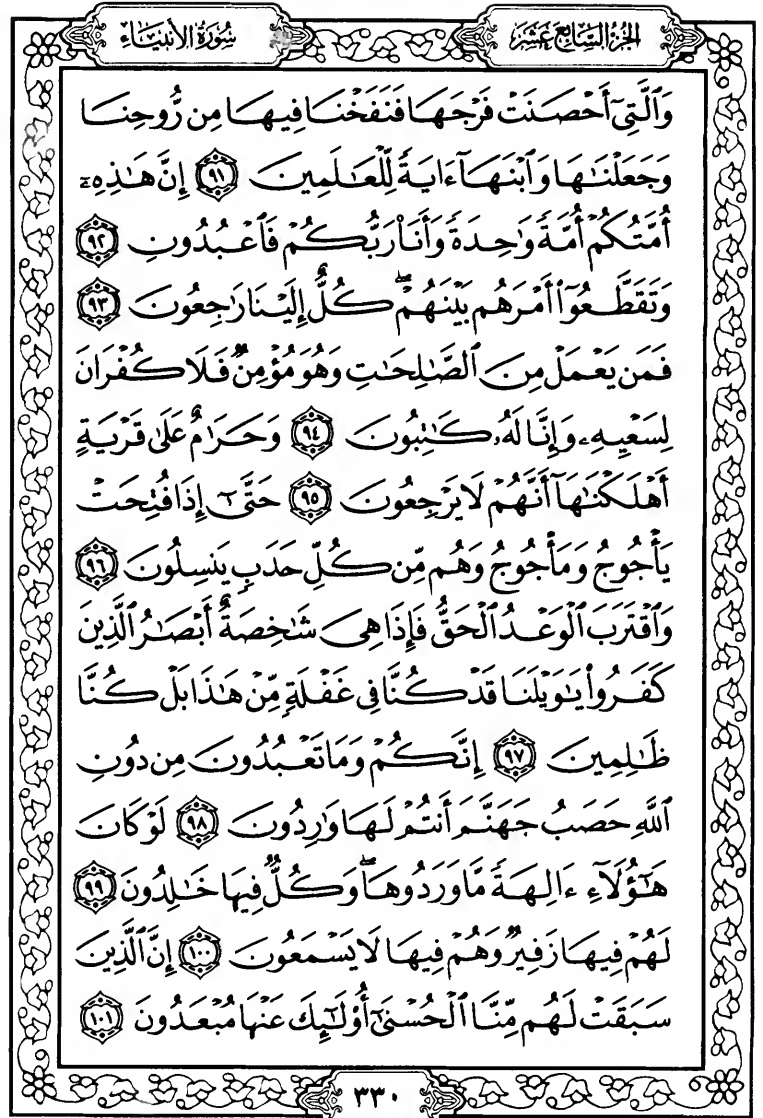 سُورَةُ الأَنبِيَاءِ
الجُزْءُ السَّابِعَ عَشَرَ
وَٱلَّتِىٓ أَحْصَنَتْ فَرْجَهَا فَنَفَخْنَا فِيهَا مِن رُّوحِنَا
وَجَعَلْنَٰهَا وَٱبْنَهَآ ءَايَةً لِّلْعَٰلَمِينَ ۝٩١ إِنَّ هَٰذِهِۦٓ
أُمَّتُكُمْ أُمَّةً وَٰحِدَةً وَأَنَا۠ رَبُّكُمْ فَٱعْبُدُونِ ۝٩٢
وَتَقَطَّعُوٓا۟ أَمْرَهُم بَيْنَهُمْ ۖ كُلٌّ إِلَيْنَا رَٰجِعُونَ ۝٩٣
فَمَن يَعْمَلْ مِنَ ٱلصَّٰلِحَٰتِ وَهُوَ مُؤْمِنٌ فَلَا كُفْرَانَ
لِسَعْيِهِۦ وَإِنَّا لَهُۥ كَٰتِبُونَ ۝٩٤ وَحَرَٰمٌ عَلَىٰ قَرْيَةٍ
أَهْلَكْنَٰهَآ أَنَّهُمْ لَا يَرْجِعُونَ ۝٩٥ حَتَّىٰٓ إِذَا فُتِحَتْ
يَأْجُوجُ وَمَأْجُوجُ وَهُم مِّن كُلِّ حَدَبٍ يَنسِلُونَ ۝٩٦
وَٱقْتَرَبَ ٱلْوَعْدُ ٱلْحَقُّ فَإِذَا هِىَ شَٰخِصَةٌ أَبْصَٰرُ ٱلَّذِينَ
كَفَرُوا۟ يَٰوَيْلَنَا قَدْ كُنَّا فِى غَفْلَةٍ مِّنْ هَٰذَا بَلْ كُنَّا
ظَٰلِمِينَ ۝٩٧ إِنَّكُمْ وَمَا تَعْبُدُونَ مِن دُونِ
ٱللَّهِ حَصَبُ جَهَنَّمَ أَنتُمْ لَهَا وَٰرِدُونَ ۝٩٨ لَوْ كَانَ
هَٰٓؤُلَآءِ ءَالِهَةً مَّا وَرَدُوهَا ۖ وَكُلٌّ فِيهَا خَٰلِدُونَ ۝٩٩
لَهُمْ فِيهَا زَفِيرٌ وَهُمْ فِيهَا لَا يَسْمَعُونَ ۝١٠٠ إِنَّ ٱلَّذِينَ
سَبَقَتْ لَهُم مِّنَّا ٱلْحُسْنَىٰٓ أُو۟لَٰٓئِكَ عَنْهَا مُبْعَدُونَ ۝١٠١
٣٣٠